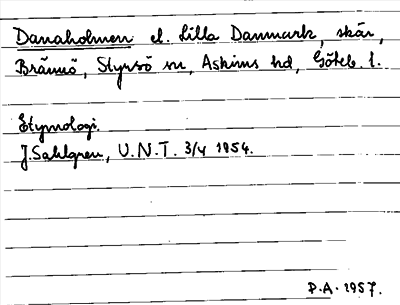 Danaholmen el. Lilla Danmark, skär,
Brännö, Styrsö sn, Askims hd, Göteb. l.
Etymologi.
J. Sahlgren, U.N.T. 3/4 1954.
P.A. 1957.